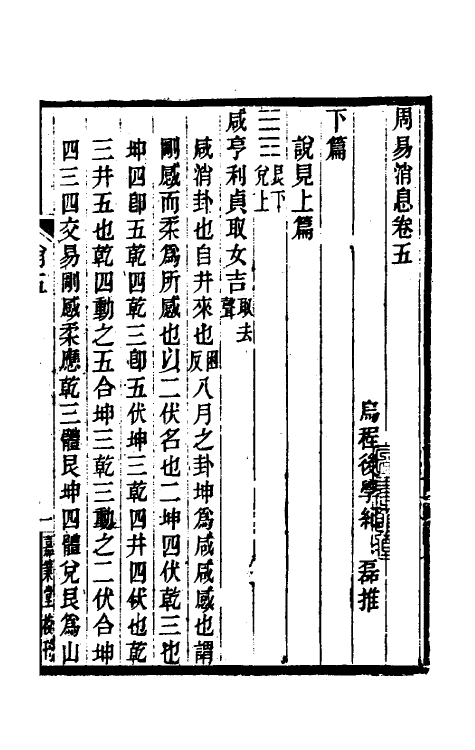 周易消息卷五
烏程後學紀　磊推
下篇
說見上篇
艮下兌上
咸亨利貞取女吉取去聲
咸消卦也自井來也困反八月之卦坤爲咸咸感也謂
剛感而柔爲所感也以二伏名也二坤四伏乾三也
坤四卽五乾四乾三卽五伏坤三乾四井四伏也乾
三井五也乾四動之五合坤三乾三動之二伏合坤
四三四交易剛感柔應乾三體艮坤四體兌艮爲山
一
嘉業堂校刊